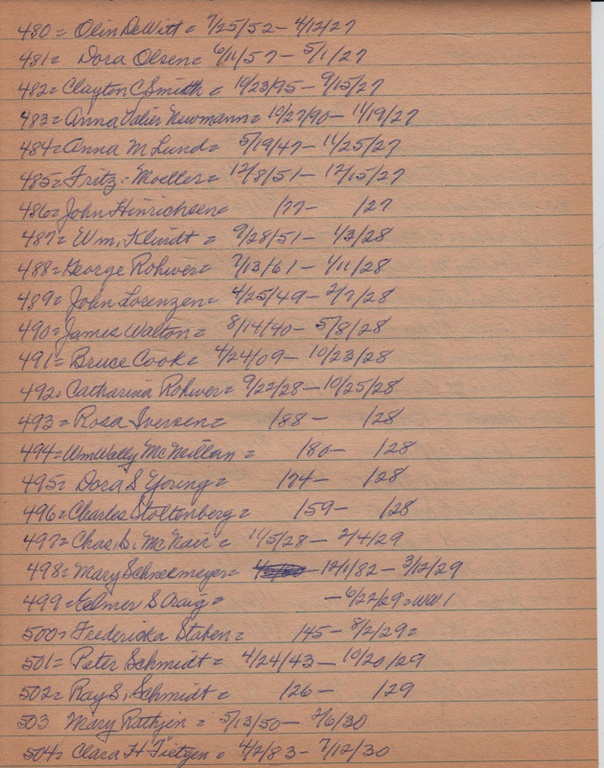 480= Olin DeWitt= 7/25/52- 4/12/27
481= Dora Olsen= 6/11/57- 5/1/27
482= Clayton C Smith= 10/23/95- 9/15/27
483= Anna Valier Newmann= 10/27/90- 11/19/27
484= Anna M Lund= 5/19/47- 11/25/27
485= Fritz- Moeller= 12/8/51- 12/15/27
486= John Hinrichsen= /77- /27
487= Wm. Klindt= 9/28/51- 1/3/28
488= George Rohwer= 7/13/61- 1/11/28
489= John Lorenzen= 4/25/49- 2/7/28
490= James Walton= 8/14/40- 5/8/28
491= Bruce Cook= 4/24/09- 10/23/28
492= Catharina Rohwer= 9/22/28- 10/25/28
493= Rosa Iversen= /88- /28
494= Wm Wally McMillan= /80- /28
495= Dora S Young= /74- /28
496= Charles Stoltenberg= /59- /28
497= Chas. S. McNair= 11/5/28- 2/4/29
498= Mary Schneemeyer= 12/1/82- 3/12/29
499= Eelmer S Craig= -6/22/29=WW1
500= Fredericka Staben= /45- 8/2/29=
501= Peter Schmidt= 4/24/43- 10/20/29
502= Ray S. Schmidt= /26- /29
503 Mary Rathjen= 5/13/50- 2/6/30
504= Clara H Tietjen= 4/2/83- 7/12/30